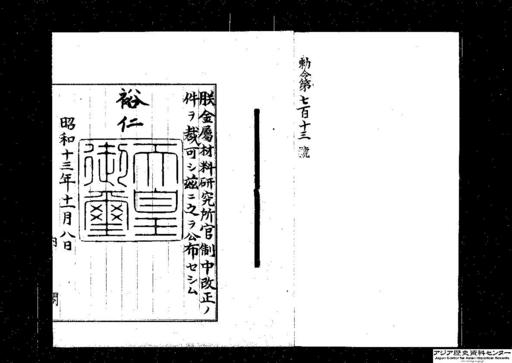 勅令第七百十三號
朕金屬材料研究所官制中改正ノ
件ヲ裁可シ茲ニ之ヲ公布セシム
裕仁
天皇御璽
昭和十三年十一月八日
内閣
アジア歴史資料センター
Japan Center for Asian Historical Records